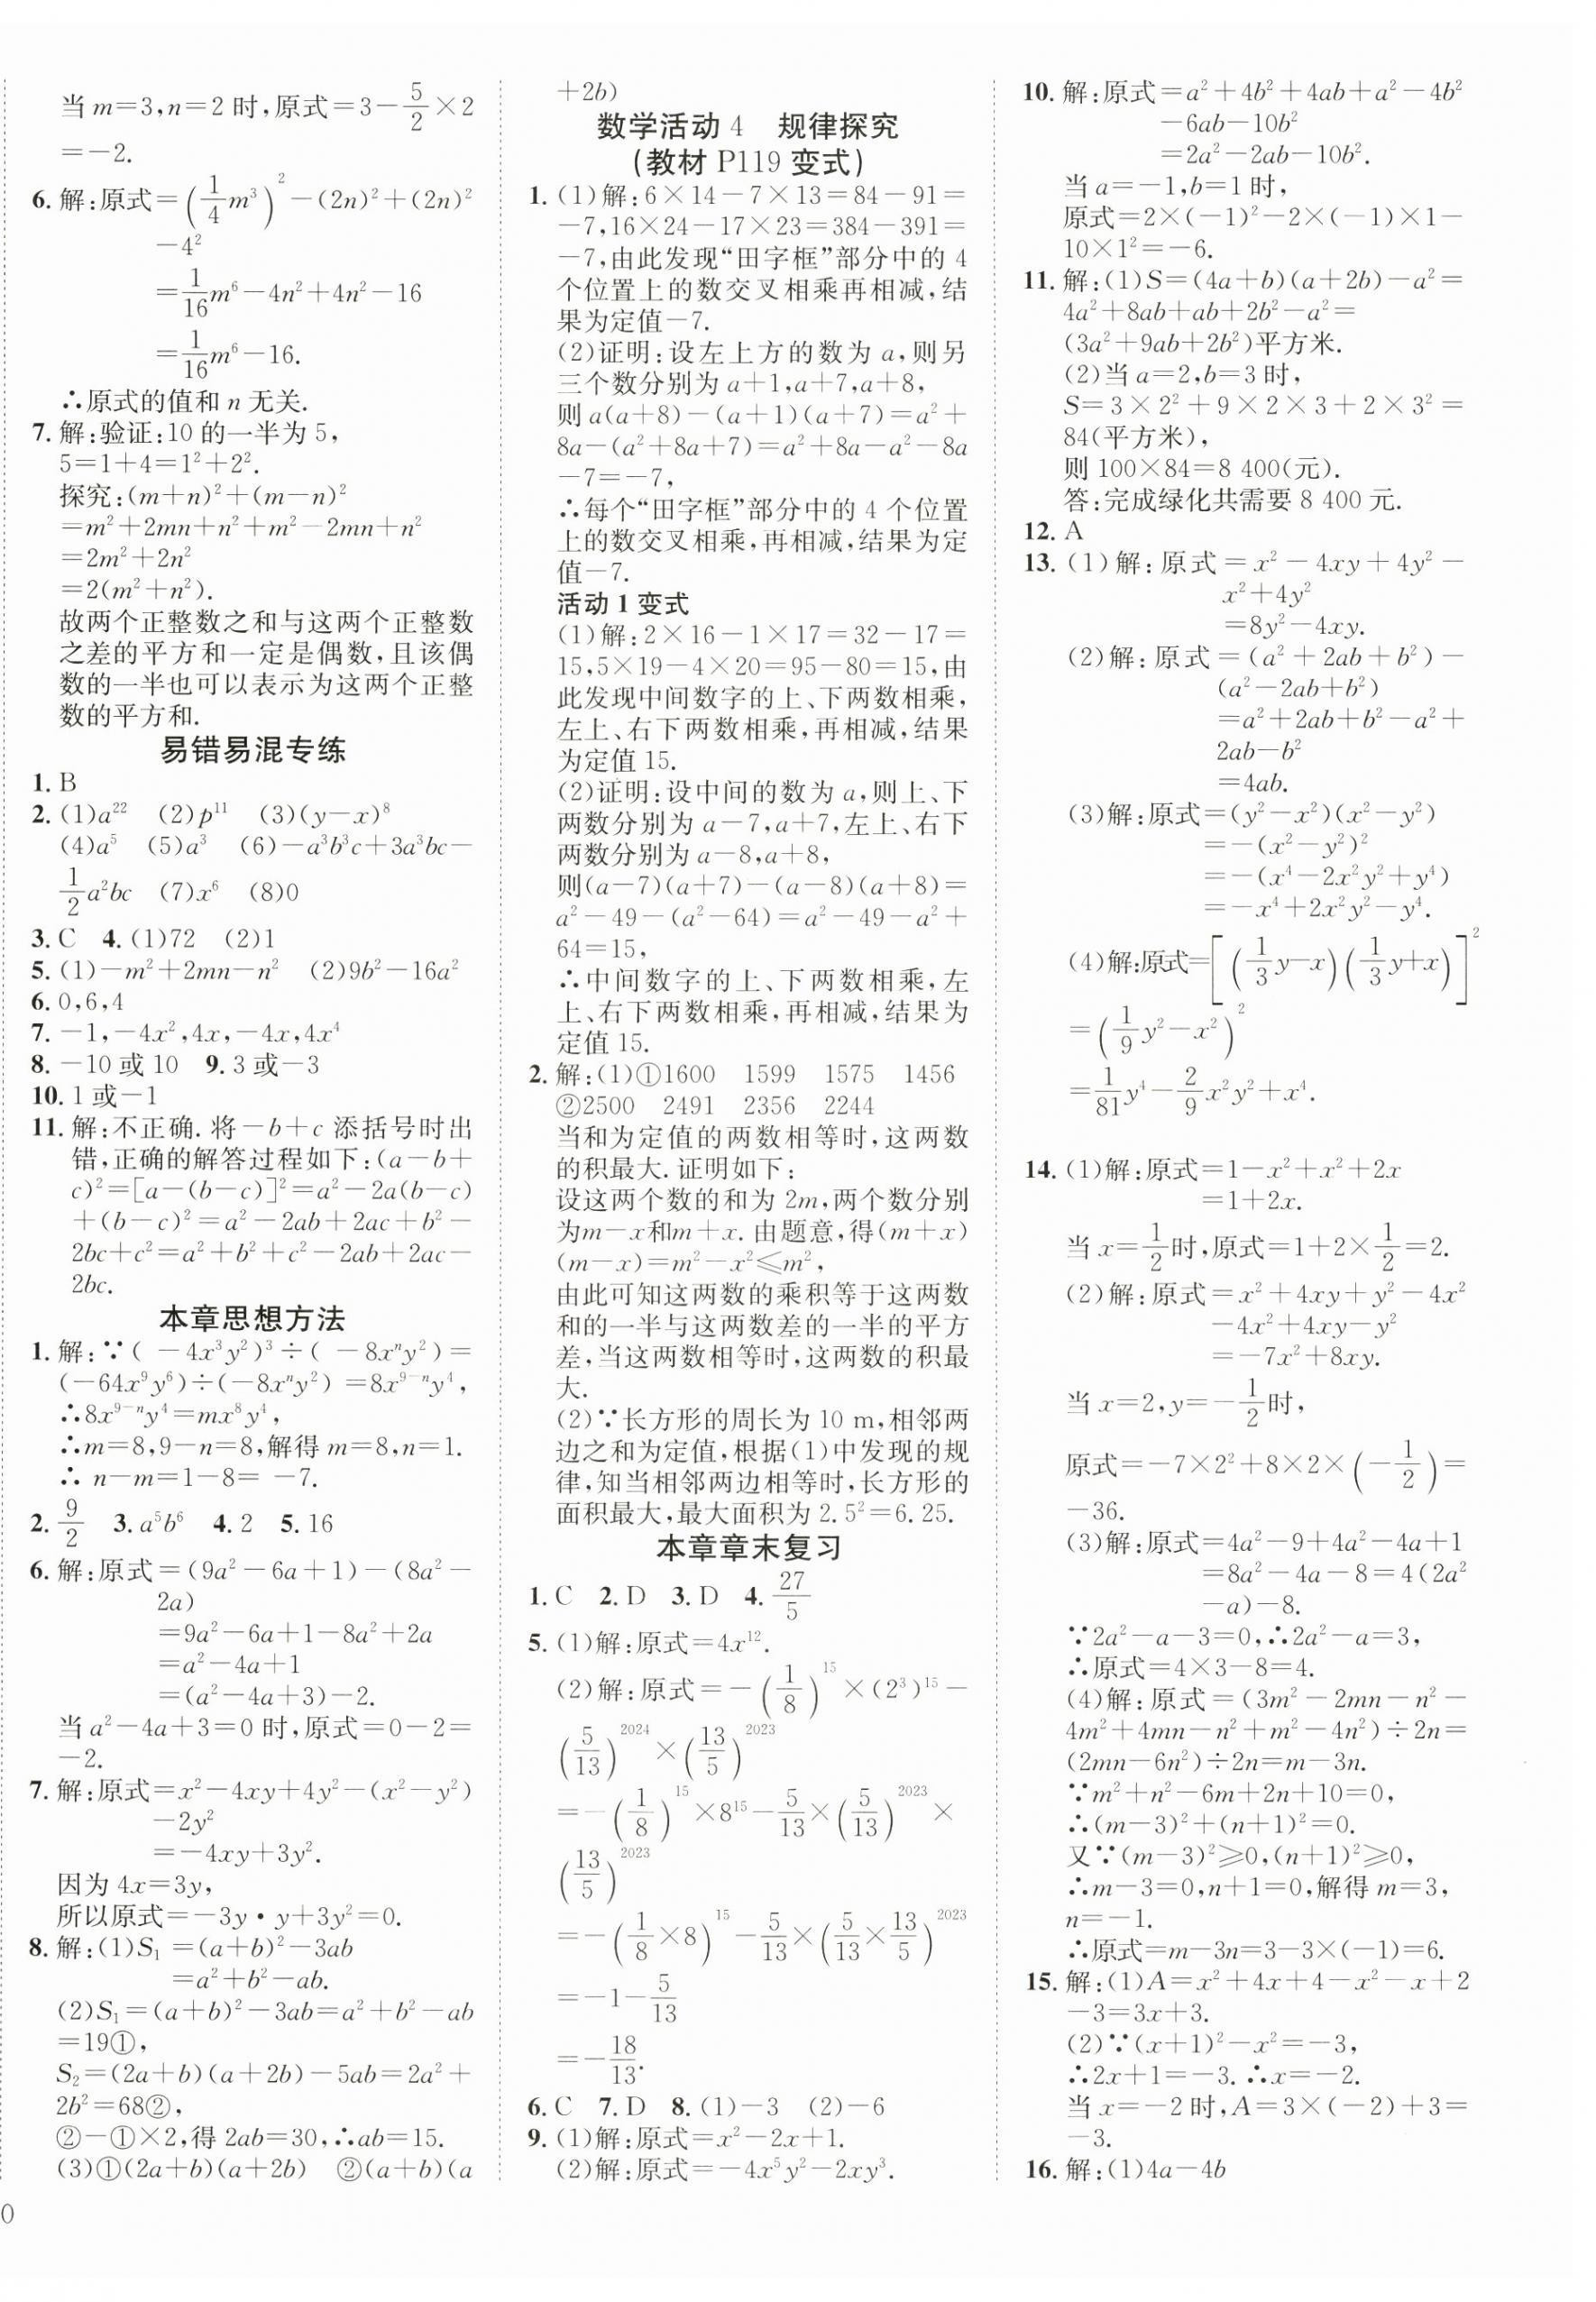 当 m=3,n=2 时,原式=3-5/2×2
=-2.
6. 解:原式=(1/4m³)²-(2n)²+(2n)²
-4²
=1/16m⁶-4n²+4n²-16
=1/16m⁶-16.
∴原式的值和 n 无关.
7. 解:验证:10 的一半为 5,
5=1+4=1²+2².
探究:(m+n)²+(m-n)²
=m²+2mn+n²+m²-2mn+n²
=2m²+2n²
=2(m²+n²).
故两个正整数之和与这两个正整数
之差的平方和一定是偶数,且该偶
数的一半也可以表示为这两个正整
数的平方和.
易错易混专练
1. B
2. (1)a²² (2)p¹¹ (3)(y-x)⁸
(4)a⁵ (5)a³ (6)-a³b³c+3a³bc-
1/2a²bc (7)x⁶ (8)0
3. C 4. (1)72 (2)1
5. (1)-m²+2mn-n² (2)9b²-16a²
6. 0,6,4
7. -1,-4x²,4x,-4x,4x⁴
8. -10 或 10 9. 3 或-3
10. 1 或-1
11. 解:不正确. 将-b+c 添括号时出
错,正确的解答过程如下:(a-b+
c)²=[a-(b-c)]²=a²-2a(b-c)
+(b-c)²=a²-2ab+2ac+b²-
2bc+c²=a²+b²+c²-2ab+2ac-
2bc.
本章思想方法
1. 解:∵(-4x³y²)³÷(-8xⁿy²)=
(-64x⁹y⁶)÷(-8xⁿy²)=8x⁹⁻ⁿy⁴,
∴8x⁹⁻ⁿy⁴=mx⁸y⁴,
∴m=8,9-n=8,解得 m=8,n=1.
∴ n-m=1-8= -7.
2. 9/2 3. a⁵b⁶ 4. 2 5. 16
6. 解:原式=(9a²-6a+1)-(8a²-
2a)
=9a²-6a+1-8a²+2a
=a²-4a+1
=(a²-4a+3)-2.
当 a²-4a+3=0 时,原式=0-2=
-2.
7. 解:原式=x²-4xy+4y²-(x²-y²)
-2y²
=-4xy+3y².
因为 4x=3y,
所以原式=-3y·y+3y²=0.
8. 解:(1)S₁=(a+b)²-3ab
=a²+b²-ab.
(2)S₁=(a+b)²-3ab=a²+b²-ab
=19①,
S₂=(2a+b)(a+2b)-5ab=2a²+
2b²=68②,
②-①×2,得 2ab=30,∴ab=15.
(3)①(2a+b)(a+2b) ②(a+b)(a
0
+2b)
数学活动 4 规律探究
(教材 P119 变式)
1. (1)解:6×14-7×13=84-91=
-7,16×24-17×23=384-391=
-7,由此发现“田字框”部分中的 4
个位置上的数交叉相乘再相减,结
果为定值-7.
(2)证明:设左上方的数为 a,则另
三个数分别为 a+1,a+7,a+8,
则 a(a+8)-(a+1)(a+7)=a²+
8a-(a²+8a+7)=a²+8a-a²-8a
-7=-7,
∴每个“田字框”部分中的 4 个位置
上的数交叉相乘,再相减,结果为定
值-7.
活动 1 变式
(1)解:2×16-1×17=32-17=
15,5×19-4×20=95-80=15,由
此发现中间数字的上、下两数相乘,
左上、右下两数相乘,再相减,结果
为定值 15.
(2)证明:设中间的数为 a,则上、下
两数分别为 a-7,a+7,左上、右下
两数分别为 a-8,a+8,
则(a-7)(a+7)-(a-8)(a+8)=
a²-49-(a²-64)=a²-49-a²+
64=15,
∴中间数字的上、下两数相乘,左
上、右下两数相乘,再相减,结果为
定值 15.
2. 解:(1)①1600 1599 1575 1456
②2500 2491 2356 2244
当和为定值的两数相等时,这两数
的积最大. 证明如下:
设这两个数的和为 2m,两个数分别
为m-x和m+x. 由题意,得(m+x)
(m-x)=m²-x²⩽m²,
由此可知这两数的乘积等于这两数
和的一半与这两数差的一半的平方
差,当这两数相等时,这两数的积最
大.
(2)∵长方形的周长为 10 m,相邻两
边之和为定值,根据(1)中发现的规
律,知当相邻两边相等时,长方形的
面积最大,最大面积为 2.5²=6.25.
本章章末复习
1. C 2. D 3. D 4. 27/5
5. (1)解:原式=4x¹².
(2)解:原式=-(1/8)¹⁵×(2³)¹⁵-
(5/13)²⁰²⁴×(13/5)²⁰²³
=-(1/8)¹⁵×8¹⁵-5/13×(5/13)²⁰²³×
(13/5)²⁰²³
=-(1/8×8)¹⁵-5/13×(5/13×13/5)²⁰²³
=-1-5/13
=-18/13.
6. C 7. D 8. (1)-3 (2)-6
9. (1)解:原式=x²-2x+1.
(2)解:原式=-4x⁵y²-2xy³.
10. 解:原式=a²+4b²+4ab+a²-4b²
-6ab-10b²
=2a²-2ab-10b².
当 a=-1,b=1 时,
原式=2×(-1)²-2×(-1)×1-
10×1²=-6.
11. 解:(1)S=(4a+b)(a+2b)-a²=
4a²+8ab+ab+2b²-a²=
(3a²+9ab+2b²)平方米.
(2)当 a=2,b=3 时,
S=3×2²+9×2×3+2×3²=
84(平方米),
则 100×84=8 400(元).
答:完成绿化共需要 8 400 元.
12. A
13. (1)解:原式=x²-4xy+4y²-
x²+4y²
=8y²-4xy.
(2)解:原式=(a²+2ab+b²)-
(a²-2ab+b²)
=a²+2ab+b²-a²+
2ab-b²
=4ab.
(3)解:原式=(y²-x²)(x²-y²)
=-(x²-y²)²
=-(x⁴-2x²y²+y⁴)
=-x⁴+2x²y²-y⁴.
(4)解:原式=[(1/3y-x)(1/3y+x)]²
=(1/9y²-x²)²
=1/81y⁴-2/9x²y²+x⁴.
14. (1)解:原式=1-x²+x²+2x
=1+2x.
当 x=1/2时,原式=1+2×1/2=2.
(2)解:原式=x²+4xy+y²-4x²
-4x²+4xy-y²
=-7x²+8xy.
当 x=2,y=-1/2时,
原式=-7×2²+8×2×(-1/2)=
-36.
(3)解:原式=4a²-9+4a²-4a+1
=8a²-4a-8=4(2a²
-a)-8.
∵2a²-a-3=0,∴2a²-a=3,
∴原式=4×3-8=4.
(4)解:原式=(3m²-2mn-n²-
4m²+4mn-n²+m²-4n²)÷2n=
(2mn-6n²)÷2n=m-3n.
∵m²+n²-6m+2n+10=0,
∴(m-3)²+(n+1)²=0.
又∵(m-3)²⩾0,(n+1)²⩾0,
∴m-3=0,n+1=0,解得 m=3,
n=-1.
∴原式=m-3n=3-3×(-1)=6.
15. 解:(1)A=x²+4x+4-x²-x+2
-3=3x+3.
(2)∵(x+1)²-x²=-3,
∴2x+1=-3. ∴x=-2.
当 x=-2 时,A=3×(-2)+3=
-3.
16. 解:(1)4a-4b